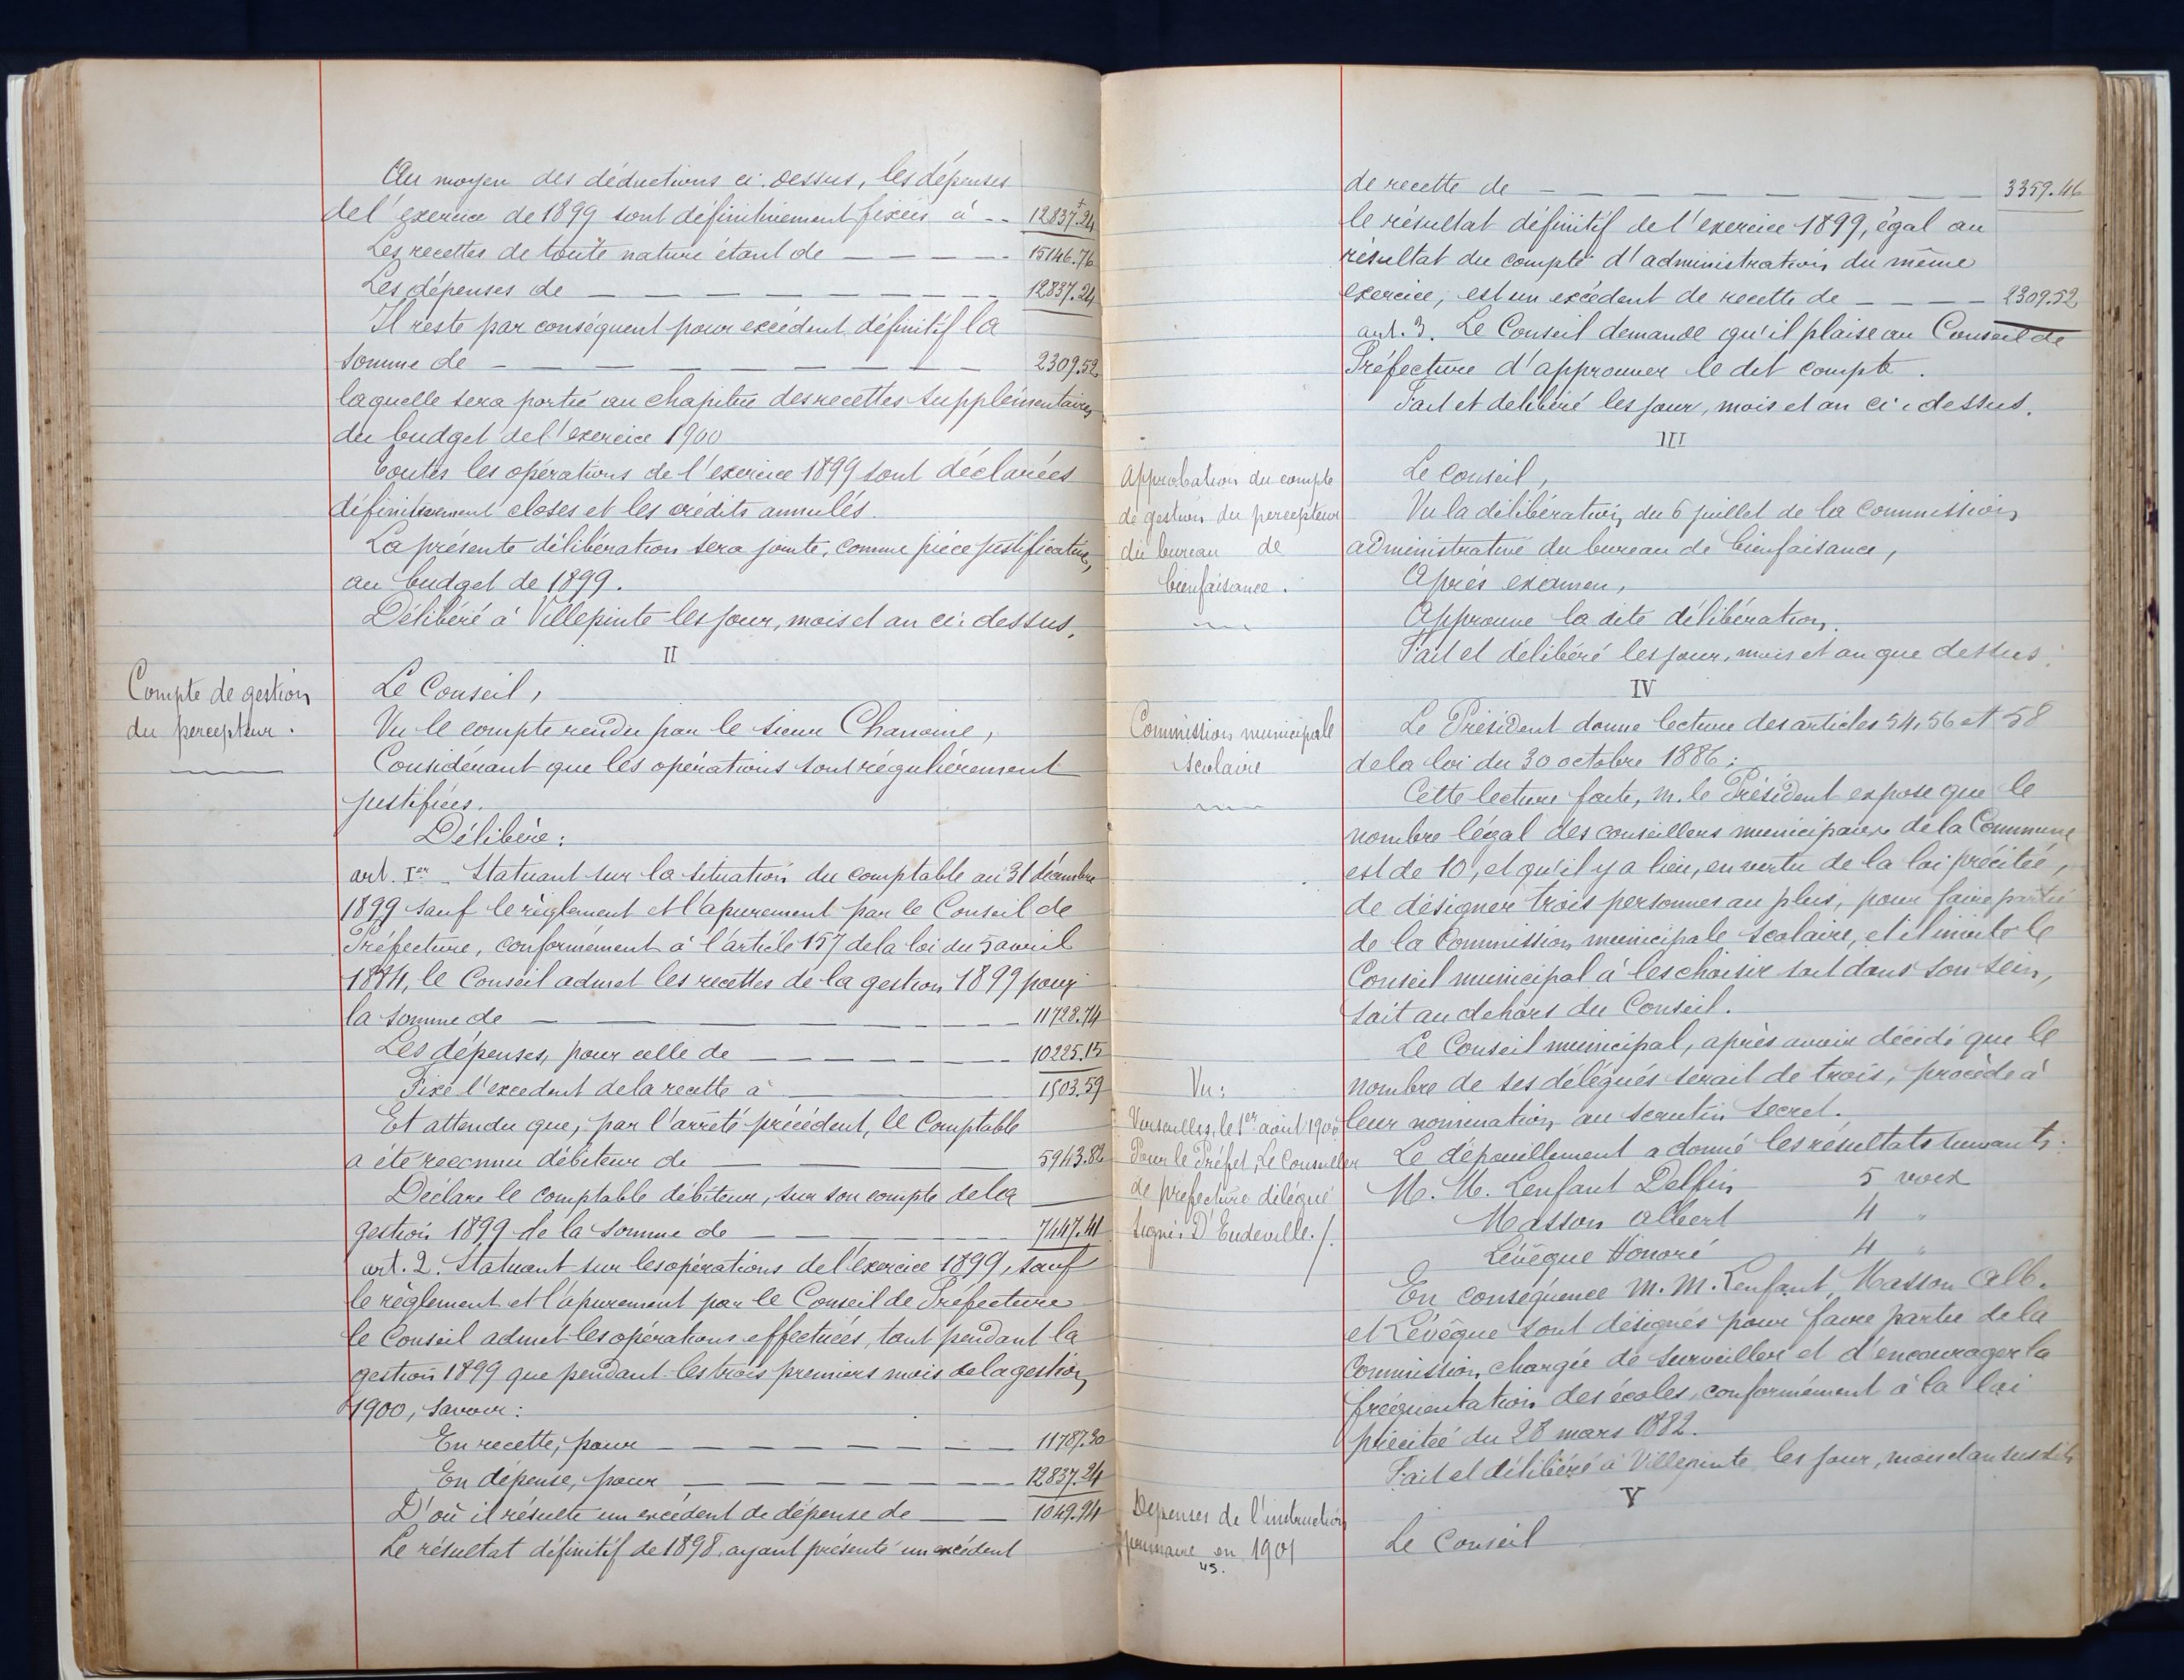 Au moyen des déductions ci-dessus, les dépenses
de l'exercice de 1899 sont définitivement fixées à -- 12837.24
Les recettes de toute nature étant de — — — — — 15146.76
Les dépenses de — — — — — — — — 12837.24
Il reste par conséquent pour excédent définitif la
somme de — — — — — — — — — 2309.52
laquelle sera portée au chapitre des recettes supplémentaires
du budget de l'exercice 1900
Toutes les opérations de l'exercice 1899 sont déclarées
définitivement closes et les crédits annulés.
La présente délibération sera jointe, comme pièce justificative,
au budget de 1899.
Délibéré à Villepinte les jour, mois et an ci-dessus.
II
Compte de gestion
du percepteur.
Le Conseil,
Vu le compte rendu par le sieur Chanoine,
Considérant que les opérations sont régulièrement
justifiées.
Délibère:
art. Ier. Statuant sur la situation du comptable au 31 décembre
1899 sauf le règlement et l'apurement par le Conseil de
Préfecture, conformément à l'article 157 de la loi du 5 avril
1884, le Conseil admet les recettes de la gestion 1899 pour
la somme de — — — — — — 11728.74
Les dépenses, pour celle de — — — — — — 10225.15
Fixe l'excédent de la recette à — — 1503.59
Et attendu que, par l'arrêté précédent, le Comptable
a été reconnu débiteur de — — — 5943.82
Déclare le comptable débiteur, sur son compte de la
gestion 1899 de la somme de — — — 7447.41
art. 2. Statuant sur les opérations de l'exercice 1899, sauf
le règlement et l'apurement par le Conseil de Préfecture
le Conseil admet les opérations effectuées, tant pendant la
gestion 1899 que pendant les trois premiers mois de la gestion
1900, savoir:
En recette, pour — — — — — — — 11787.30
En dépense, pour — — — — — — 12837.24
D'où il résulte un excédent de dépense de — — 1049.94
Le résultat définitif de 1898 ayant présenté un excédent
de recette de — — — — — — — 3359.46
le résultat définitif de l'exercice 1899, égal au
résultat du compte d'administration du même
exercice, est un excédent de recette de — — — — 2309.52
art. 3. Le Conseil demande qu'il plaise au Conseil de
Préfecture d'approuver le dit compte.
Fait et délibéré les jour, mois et an ci-dessus.
III
Approbation du compte
de gestion du percepteur
du bureau de
bienfaisance.
Le Conseil,
Vu la délibération du 6 juillet de la Commission
administrative du bureau de bienfaisance,
Après examen,
Approuve la dite délibération.
Fait et délibéré les jour, mois et an que dessus.
IV
Commission municipale
scolaire
Le Président donne lecture des articles 54, 56 et 58
de la loi du 30 octobre 1886;
Cette lecture faite, M. le Président expose que le
nombre légal des conseillers municipaux de la Commune
est de 10, et qu'il y a lieu, en vertu de la loi précitée,
de désigner trois personnes au plus, pour faire partie
de la Commission municipale scolaire, et il invite le
Conseil municipal à les choisir soit dans son sein,
soit au dehors du Conseil.
Le Conseil municipal, après avoir décidé que le
nombre de ses délégués serait de trois, procède à
leur nomination au scrutin secret.
Le dépouillement a donné les résultats suivants:
M. M. Lenfant Delfin 5 voix
Masson Albert 4 "
Lévêque Honoré 4 "
En conséquence M. M. Lenfant, Masson Alb.
et Lévêque sont désignés pour faire partie de la
Commission chargée de surveiller et d'encourager la
fréquentation des écoles, conformément à la loi
précitée du 28 mars 1882.
Fait et délibéré à Villepinte les jour, mois et an susdits
Vu:
Versailles, le 1er août 1900
Pour le Préfet, Le Conseiller
de préfecture délégué
Signé: D'Eudeville./.
V
Dépenses de l'instruction
primaire en 1901
45.
Le Conseil